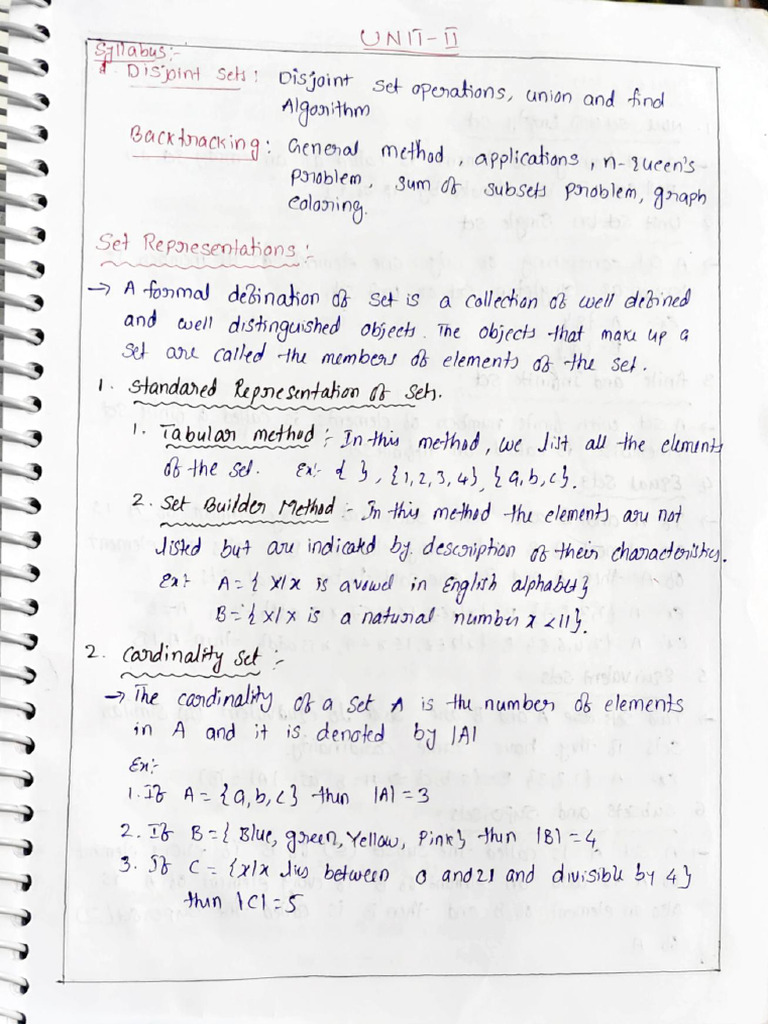 UNIT-II
Syllabus:-
Disjoint Sets: Disjoint Set operations, union and find
Algorithm
Backtracking: General method, applications, n-queen's
problem, sum of subsets problem, graph
coloring.
Set Representations:-
→ A formal defination of set is a collection of well defined
and well distinguished objects. The objects that make up a
set are called the members of elements of the set.
1. Standared Representation of Sets.
1. Tabular method:- In this method, we list all the elements
of the set. Ex:- { }, {1,2,3,4}, {a,b,c}.
2. Set Builder Method:- In this method the elements are not
listed but are indicated by description of their characteristics.
Ex:- A={x/x is a vowel in English alphabet}
B={x/x is a natural number x<11}.
2. Cardinality Set:-
→ The cardinality of a set A is the number of elements
in A and it is denoted by |A|
Ex:-
1. If A={a,b,c} then |A|=3
2. If B={Blue, green, Yellow, Pink} then |B|=4
3. If C={x/x lies between 0 and 21 and divisible by 4}
then |C|=5